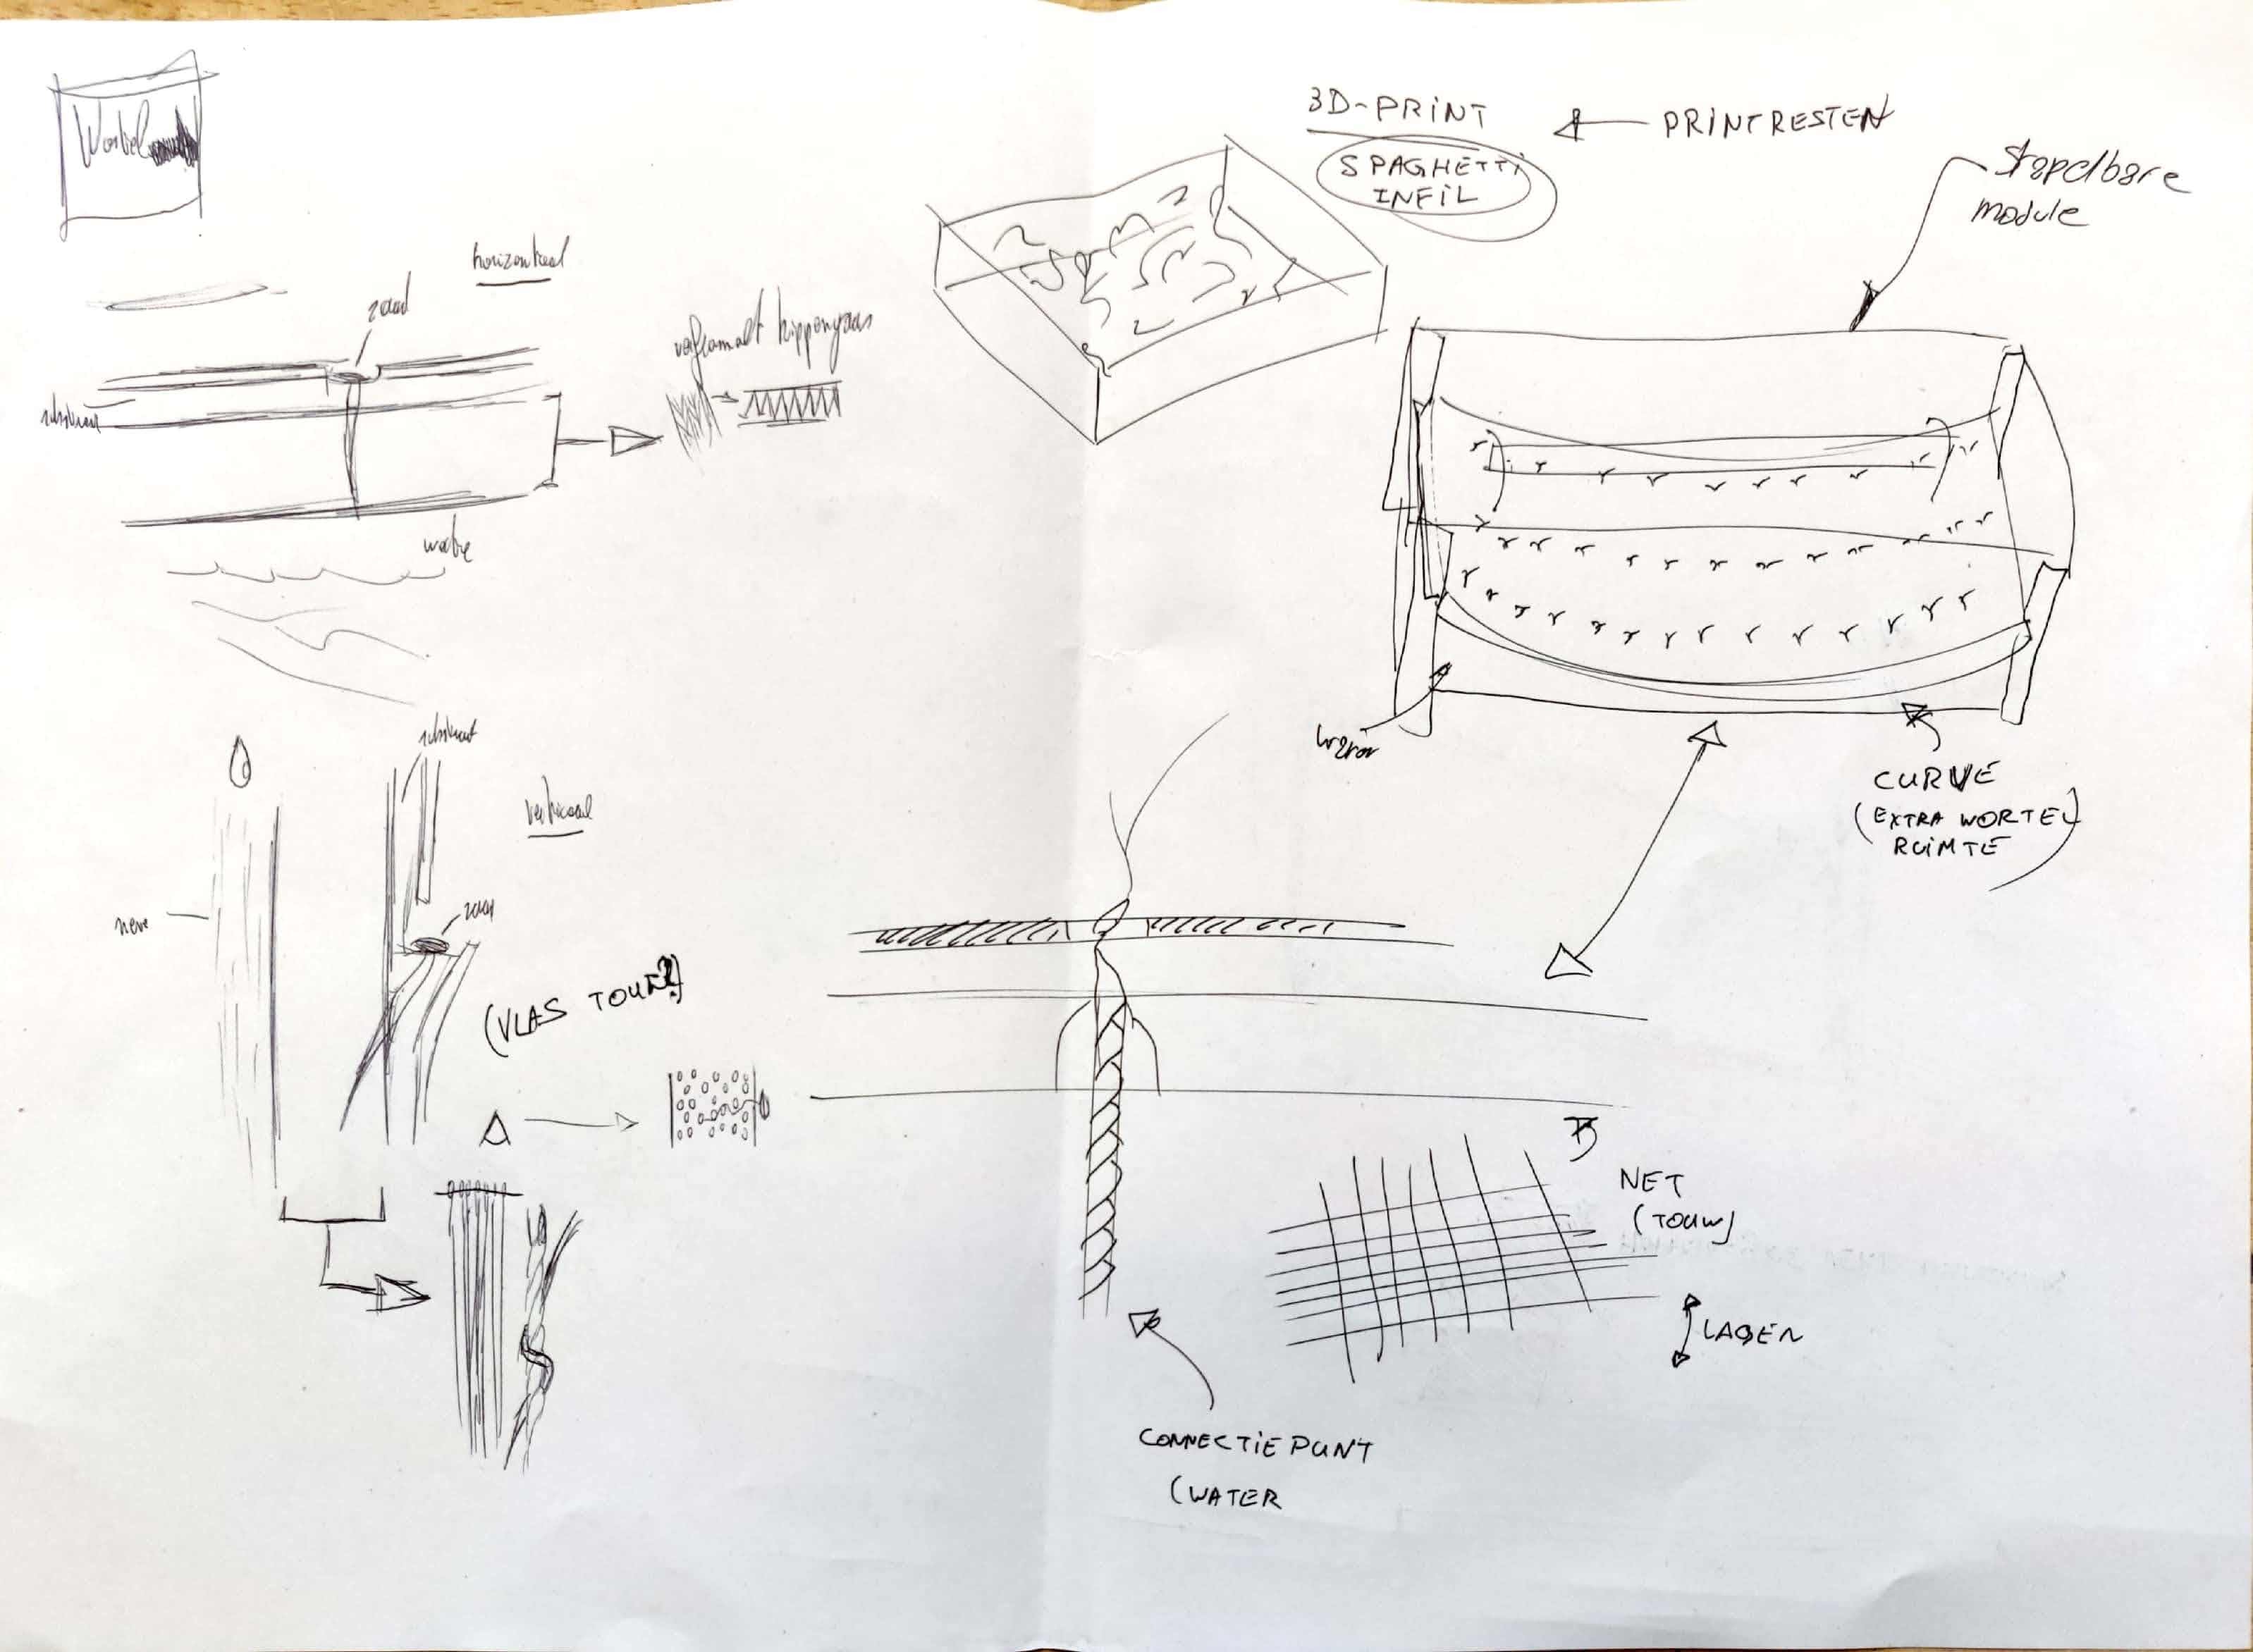 Wortel
horizontaal
zaad
substraat
water
3D-PRINT
PRINTRESTEN
SPAGHETTI
INFIL
stapelbare
module
CURVE
(EXTRA WORTEL
RUIMTE
substraat
verticaal
zaad
(VLAS TOUW?)
NET
(TOUW)
LAGEN
CONNECTIEPUNT
(WATER